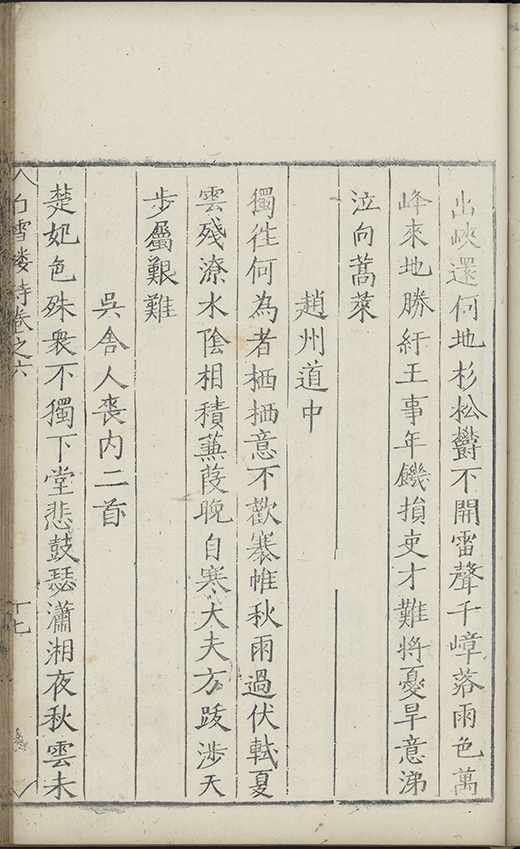 出峽還何地杉松欝不開雷聲千嶂落雨色萬
峰來地勝紆王事年饑損吏才難將憂旱意涕
泣向蒿萊
趙州道中
獨徃何為者栖栖意不歡褰帷秋雨過伏軾夏
雲殘潦水陰相積蒹葭晚自寒大夫方跋渉天
步屬艱難
吳舍人喪内二首
楚妃色殊衆不獨下堂悲鼓瑟瀟湘夜秋雲未
白雪楼詩卷之六
十七